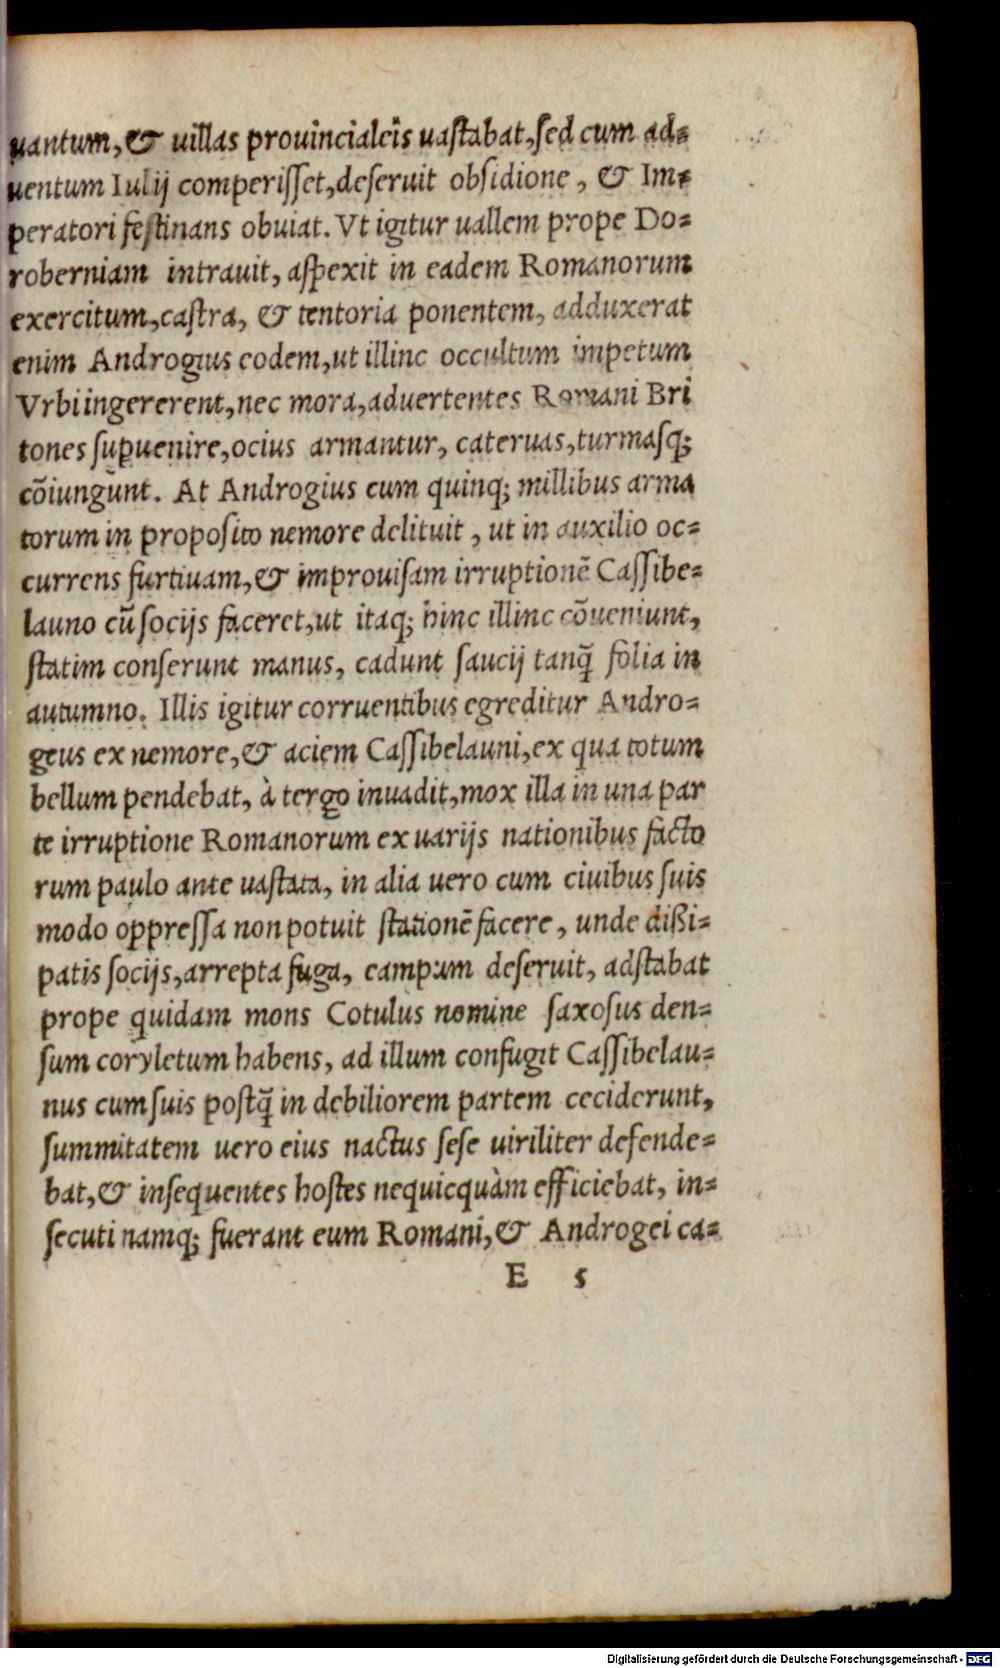 uantum, & uillas prouincialeis uastabat, sed cum ad=
uentum Iulij comperisset, deseruit obsidione, & Im=
peratori festinans obuiat. Vt igitur uallem prope Do=
roberniam intrauit, aspexit in eadem Romanorum
exercitum, castra, & tentoria ponentem, adduxerat
enim Androgius eodem, ut illinc occultum impetum
Vrbi ingererent, nec mora, aduertentes Romani Bri
tones suꝑuenire, ocius armantur, cateruas, turmasq;
cōiungunt. At Androgius cum quinq; millibus arma
torum in proposito nemore delituit, ut in auxilio oc=
currens furtiuam, & improuisam irruptionē Cassibe=
launo cū socijs faceret, ut itaq; hinc illinc cōueniunt,
statim conserunt manus, cadunt saucij tanq̄ folia in
autumno. Illis igitur corruentibus egreditur Andro=
geus ex nemore, & aciem Cassibelauni, ex qua totum
bellum pendebat, à tergo inuadit, mox illa in una par
te irruptione Romanorum ex uarijs nationibus facto
rum paulo ante uastata, in alia uero cum ciuibus suis
modo oppressa non potuit stationē facere, unde dißi=
patis socijs, arrepta fuga, campum deseruit, adstabat
prope quidam mons Cotulus nomine saxosus den=
sum coryletum habens, ad illum confugit Cassibelau=
nus cum suis postq̄ in debiliorem partem ceciderunt,
summitatem uero eius nactus sese uiriliter defende=
bat, & insequentes hostes nequicquàm efficiebat, in=
secuti namq; fuerant eum Romani, & Androgei ca=
E 5
Digitalisierung gefördert durch die Deutsche Forschungsgemeinschaft - DFG